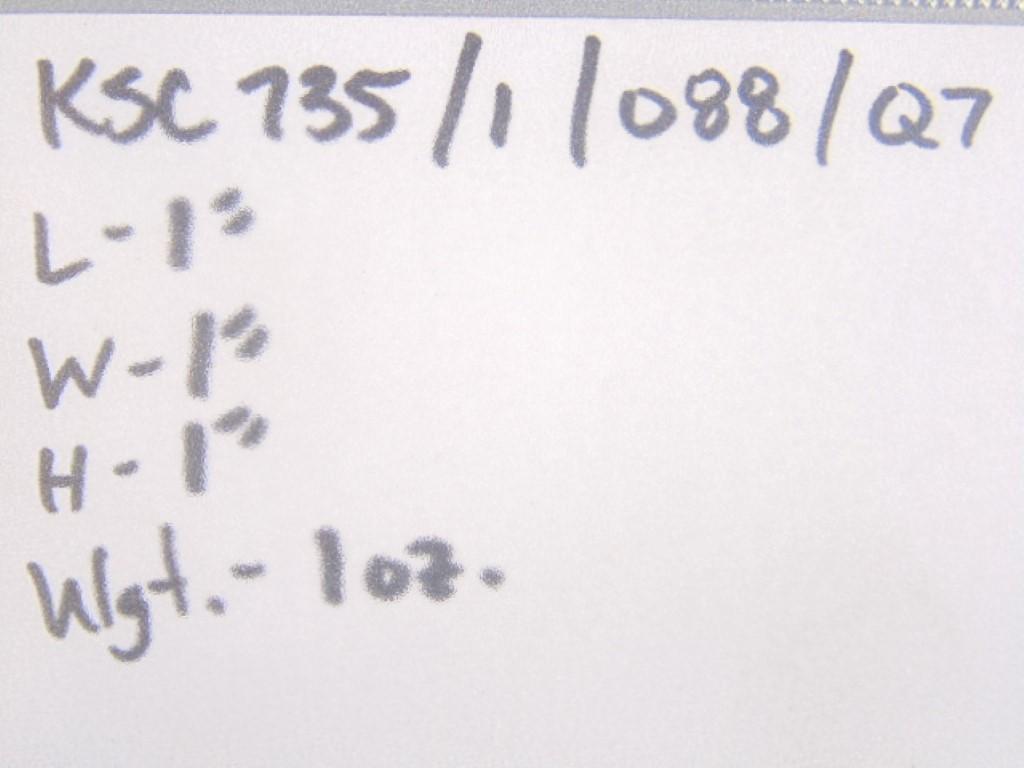 KSC 735/1/088/Q7
L - 1"
W - 1"
H - 1"
Wgt. - 1 oz.